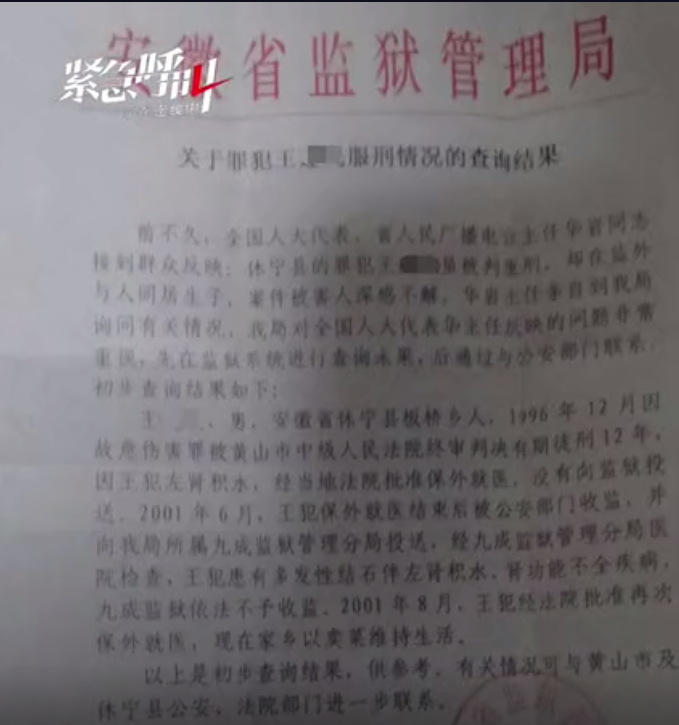 安徽省监狱管理局
紧急呼叫
关于罪犯王 服刑情况的查询结果
前不久,全国人大代表、省人民广播电台主任华岩同志
接到群众反映:休宁县的罪犯王 虽被判重刑,却在监外
与人同居生子,案件被害人深感不解,华岩主任亲自到我局
询问有关情况,我局对全国人大代表华主任反映的问题非常
重视,先在监狱系统进行查询未果,后通过与公安部门联系,
初步查询结果如下:
王 ,男,安徽省休宁县板桥乡人,1996年12月因
故意伤害罪被黄山市中级人民法院终审判决有期徒刑12年,
因王犯左肾积水,经当地法院批准保外就医,没有向监狱投
送。2001年6月,王犯保外就医结束后被公安部门收监,并
向我局所属九成监狱管理分局投送,经九成监狱管理分局医
院检查,王犯患有多发性结石伴左肾积水、肾功能不全疾病,
九成监狱依法不予收监。2001年8月,王犯经法院批准再次
保外就医,现在家乡以卖菜维持生活。
以上是初步查询结果,供参考,有关情况可与黄山市及
休宁县公安、法院部门进一步联系。